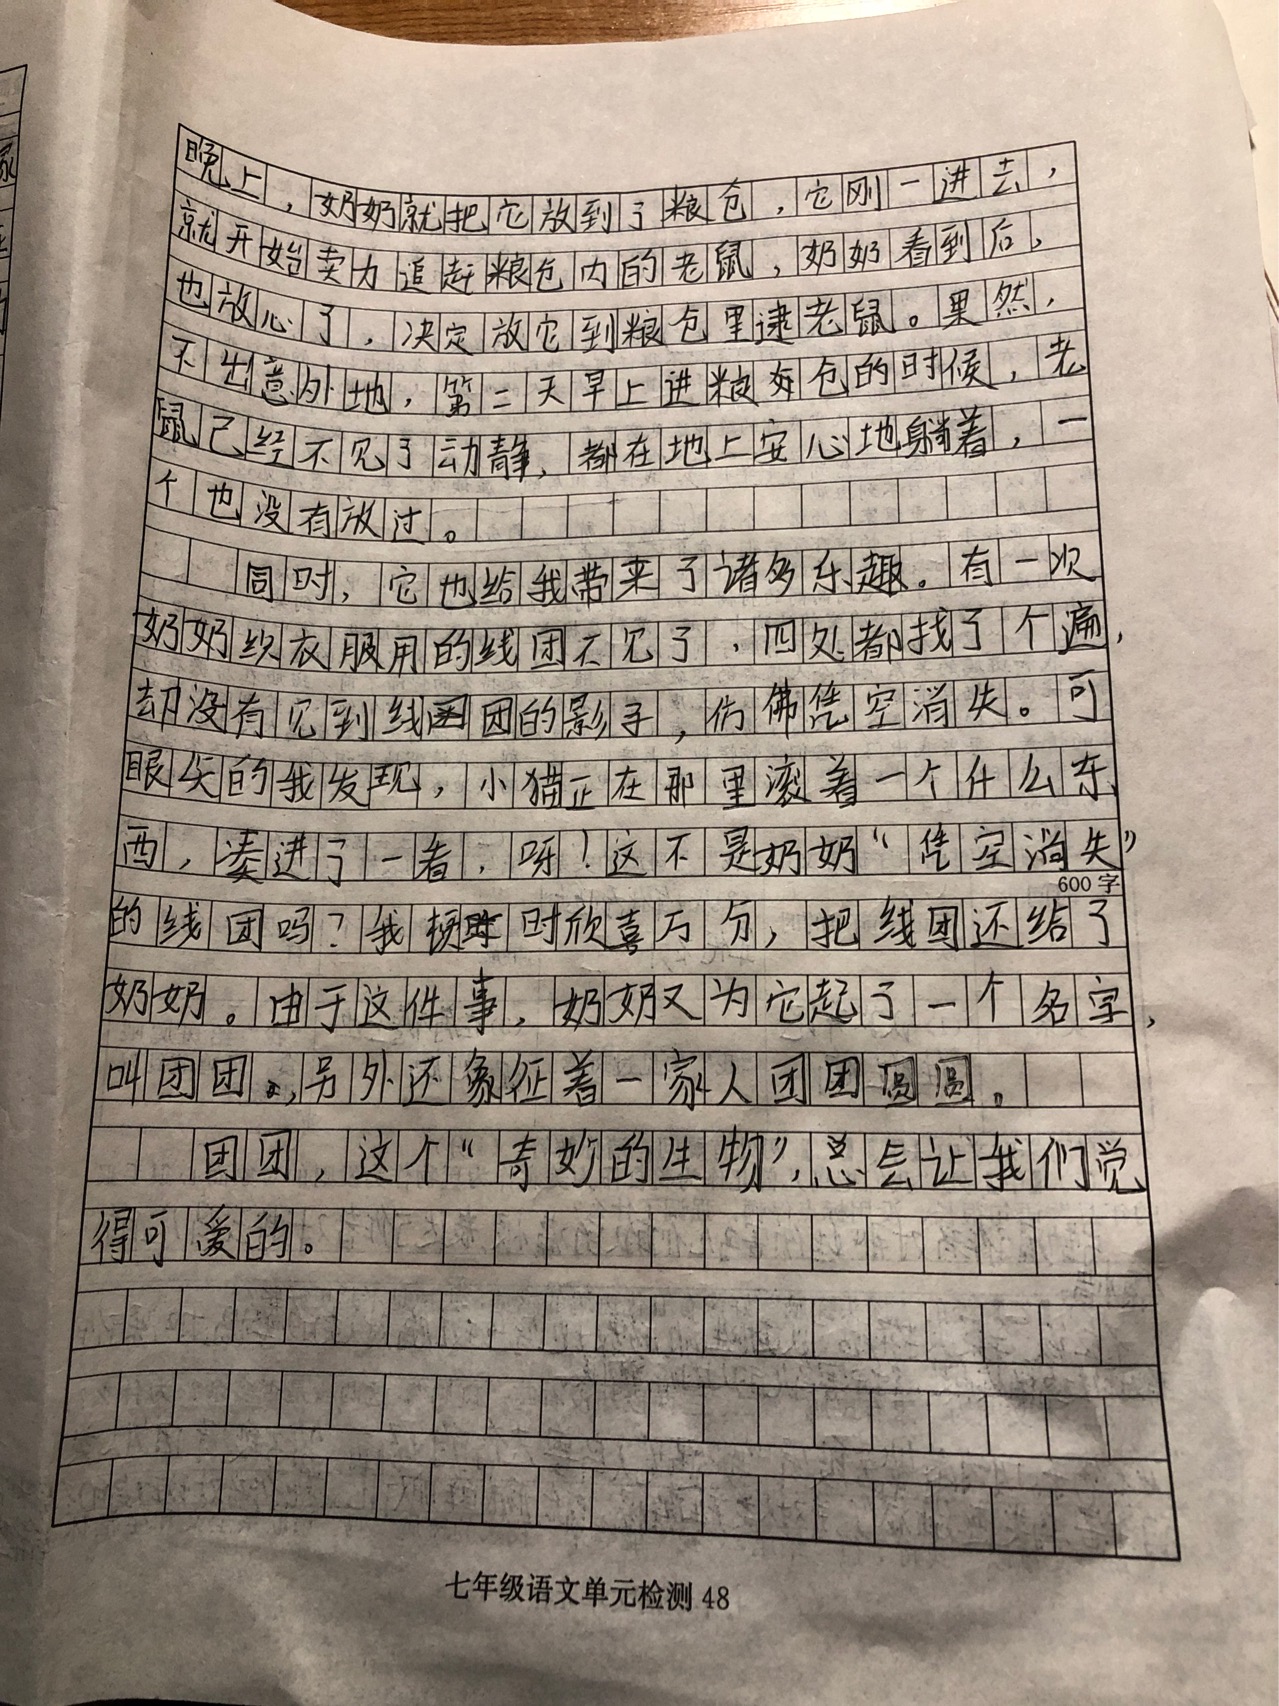 晚上，奶奶就把它放到了粮仓，它刚一进去，
就开始卖力追赶粮仓内的老鼠，奶奶看到后，
也放心了，决定放它到粮仓里逮老鼠。果然，
不出意外地，第二天早上进粮仓的时候，老
鼠已经不见了动静，都在地上安心地躺着，一
个也没有放过。
同时，它也给我带来了诸多乐趣。有一次
奶奶织衣服用的线团不见了，四处都找了个遍，
却没有见到线团的影子，仿佛凭空消失。可
眼尖的我发现，小猫正在那里滚着一个什么东
西，凑进了一看，呀！这不是奶奶“凭空消失”
600字
的线团吗？我顿时欣喜万分，把线团还给了
奶奶。由于这件事，奶奶又为它起了一个名字，
叫团团，另外还象征着一家人团团圆圆。
团团，这个“奇妙的生物”，总会让我们觉
得可爱的。
七年级语文单元检测48